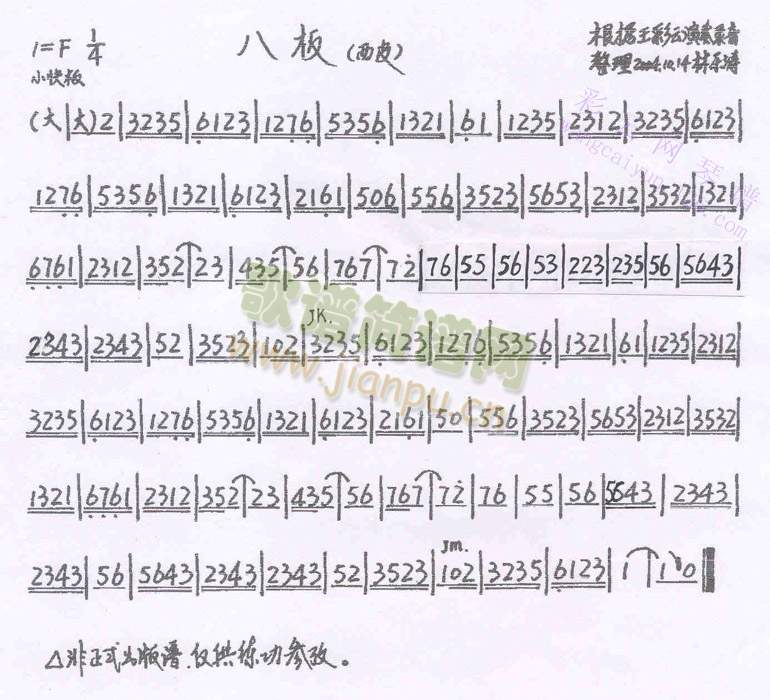 1=F 1/4 八板(西皮) 根据王彩云演奏录音
小快板 整理2004.10.14林东涛
(大|大)2|3235|6123|1276|5356|1321|61|1235|2312|3235|6123|
1276|5356|1321|6123|2161|506|556|3523|5653|2312|3532|1321|
6761|2312|352|23|435|56|767|72|76|55|56|53|223|235|56|5643|
2343|2343|52|3523|102|3235|6123|1276|5356|1321|61|1235|2312|
JK.
3235|6123|1276|5356|1321|6123|2161|50|556|3523|5653|2312|3532|
1321|6761|2312|352|23|435|56|767|72|76|55|56|5643|2343|
2343|56|5643|2343|2343|52|3523|102|3235|6123|1|10
jm.
△非正式出版谱.仅供练功参考。
歌谱简谱网
www.jianpu.cn